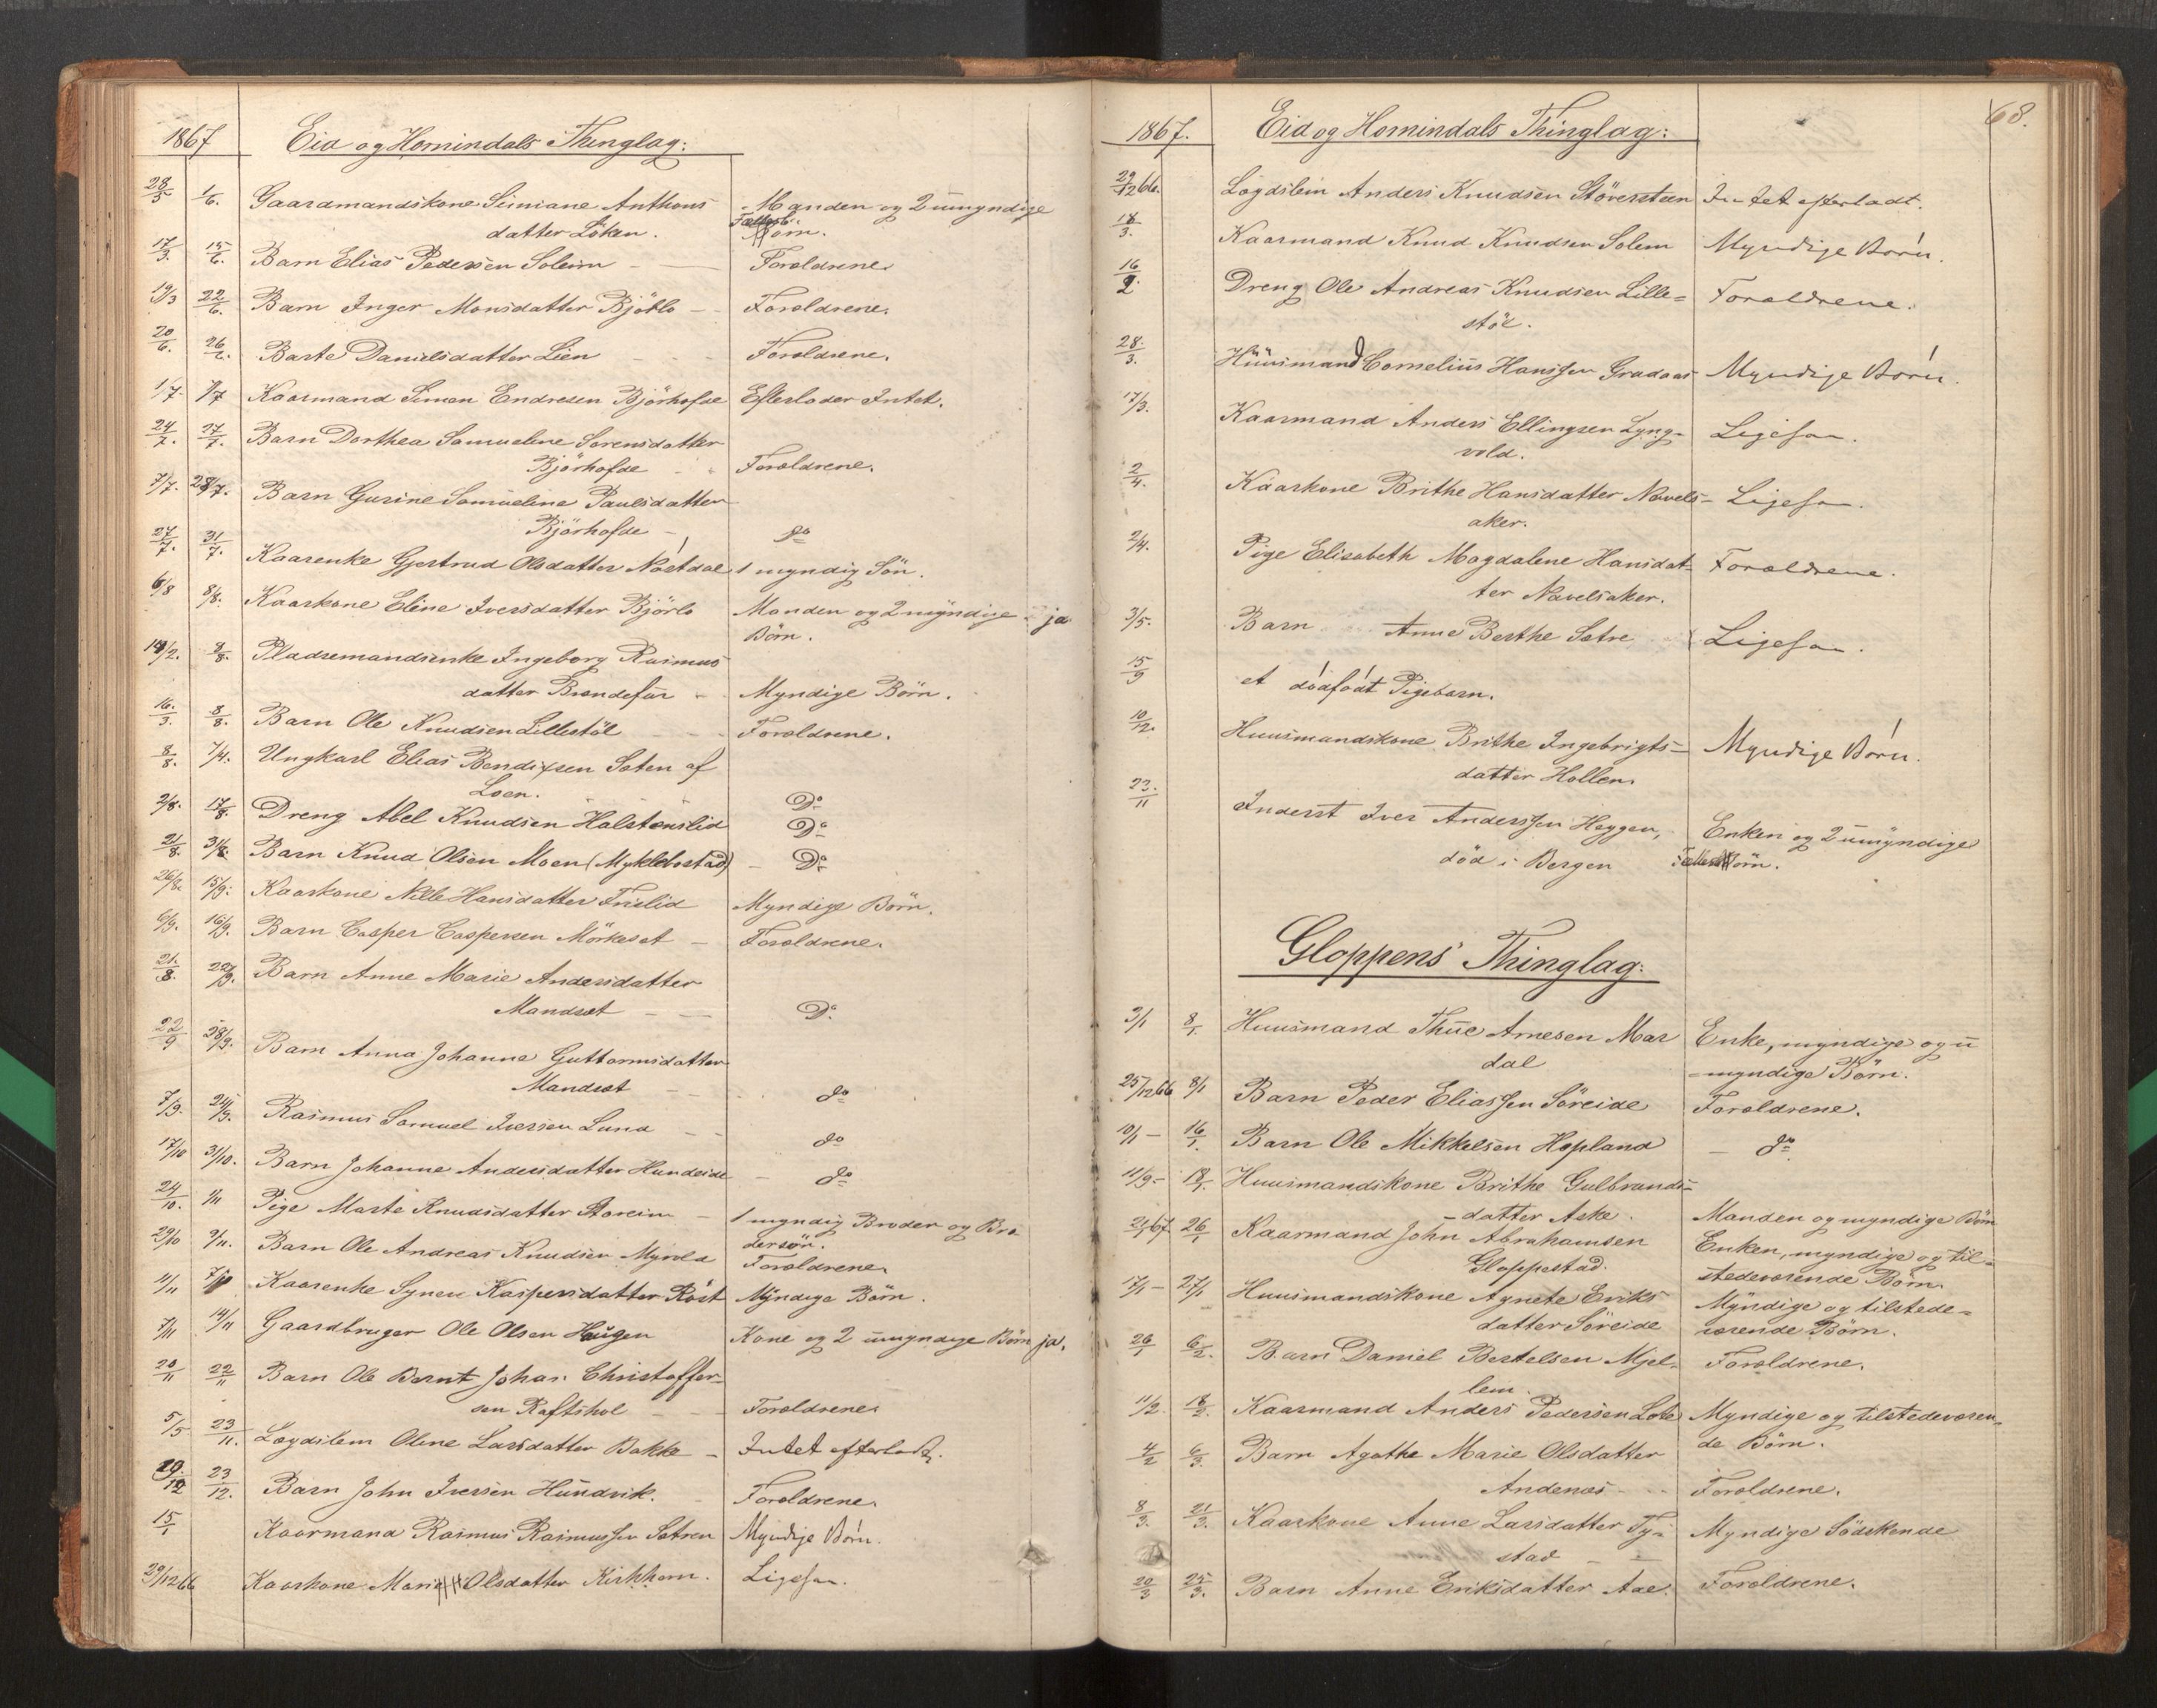 1867 Eid og Hornindals Thinglag:
28/5 1/6. Gaardmandskone Simiane Anthons Manden og 2 umyndige
datter Löken. Fælles Börn.
17/3. 15/6. Barn Elias Pedersen Soleim — Forældrene
19/3 22/6. Barn Inger Monsdatter Bjöllo — Forældrene.
20/6. 26/6. Barte Danielsdatter Lien Forældrene.
1/7 /7 Kaarmand Simon Endresen Bjørhofde Efterlader Intet.
24/7. 27/7. Barn Dorthea Samueline Sorensdatter
Bjørhofde Forældrene.
7/7. 28/7. Barn Gurine Samueline Paulsdatter
Bjørhofde — do
27/7. 31/7. Kaarenke Gjertrud Olsdatter Nøstdal 1 myndig Sön.
6/8 8/8. Kaarkone Eline Iversdatter Bjørlo Manden og 2 myndige ja
Börn.
14/2. 8/8. Pladsemandsenke Ingeborg Rasmus
datter Brendefur Myndige Börn.
16/3. 8/8. Barn Ole Knudsen Lillestöl Forældrene.
8/8. 7/4. Ungkarl Elias Bendixsen Saten af
Loen. Do
2/8. 17/8. Dreng Abel Knudsen Halstenslid Do
21/8. 31/8. Barn Knud Olsen Moen (Myklebostad) — Do
26/8. 15/9. Kaarkone Nille Hansdatter Frislid Myndige Börn.
6/9. 16/9. Barn Casper Caspersen Mörkeset — Forældrene.
21/8. 22/9. Barn Anne Marie Andersdatter
Mandsæt — Do
22/9 28/9. Barn Anna Johanne Guttormsdatter
Mandsæt — do
7/9. 24/9. Rasmus Samuel Iversen Lund — do
17/10 31/10. Barn Johanne Andersdatter Hundeide — do
24/10. 1/11 Pige Marte Knudsdatter Storeim — 1 myndig Broder og Bro
dersön.
29/10 9/11. Barn Ole Andreas Knudsen Myrold Forældrene
11/11 Kaarenke Synev Kaspersdatter Röst Myndige Börn.
7/11 14/11 Gaardbruger Ole Olsen Haugen Kone og 2 umyndige Börn ja.
20/11 22/11 Barn Ole Bernt Johan Christoffer-
sen Raftshol — Forældrene
5/5 23/11. Lægdslem Oline Larsdatter Bakke — Intet efterladt.
29/12 23/12. Barn John Iversen Hundvik. Forældrene.
15/1 Kaarmand Rasmus Rasmussen Sætren Myndige Börn.
29/12 66 Kaarkone Marie Olsdatter Kirkhorn. Ligesaa.
68.
1867. Eid og Hornindals Thinglag:
29/12 66. Lægdslem Anders Knudsen Störersteen Intet efterladt.
18/3. Kaarmand Knud Knudsen Solem Myndige Börn.
16/2. Dreng Ole Andreas Knudsen Lille= Forældrene.
stöl.
28/3. Huusmand Cornelius Hanssen Gradaas Myndige Börn.
17/3. Kaarmand Anders Ellingsen Lyng- Ligesaa.
vold.
2/4. Kaarkone Brithe Hansdatter Navels- Ligesaa.
aker.
2/4. Pige Elisabeth Magdalene Hansdat- Forældrene.
ter Navelsaker.
3/5. Barn Anne Berthe Sætre Ligesaa.
15/9 et dödfödt Pigebarn.
10/12. Huusmandskone Brithe Ingebrigts= Myndige Börn.
datter Hollen.
23/11 Inderst Iver Anderssen Heggen, Enken og 2 umyndige
död i Bergen Fælles Börn.
Gloppens Thinglag:
3/1 8/1. Huusmand Thue Arnesen Mar Enke, myndige og u
dal =myndige Börn.
25/12 66 8/1 Barn Peder Eliassen Söreide Forældrene.
10/1 — 16/1. Barn Ole Mikkelsen Hopland — do
11/9 — 18/1. Huusmandskone Brithe Gulbrands=
-datter Aske. Manden og myndige Börn
2/1 67. 26/1 Kaarmand John Abrahamsen Enken, myndige og til=
Gloppestad. stedeværende Börn.
17/1 — 27/1 Huusmandskone Agnete Eriks Myndige og tilstede=
datter Söreide værende Börn.
26/1 6/2. Barn Daniel Bertelsen Mjel- Forældrene.
lem
11/2. 18/2. Kaarmand Anders Pedersen Lote Myndige og tilstedeværen=
de Börn.
4/2 6/3. Barn Agathe Marie Olsdatter
Andenæs Forældrene.
8/3. 21/3. Kaarkone Anne Larsdatter Ty= Myndige Södskende
stad
20/3 25/3. Barn Anne Eriksdatter Aae. Forældrene.